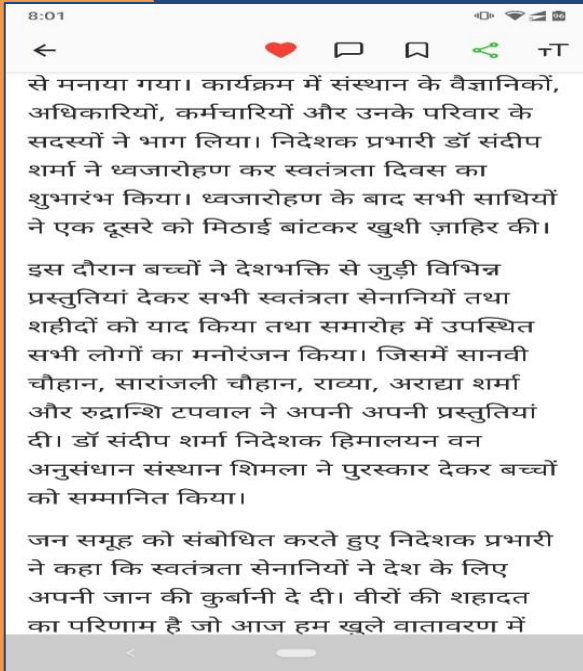 8:01
96
TT
से मनाया गया। कार्यक्रम में संस्थान के वैज्ञानिकों,
अधिकारियों, कर्मचारियों और उनके परिवार के
सदस्यों ने भाग लिया। निदेशक प्रभारी डॉ संदीप
शर्मा ने ध्वजारोहण कर स्वतंत्रता दिवस का
शुभारंभ किया। ध्वजारोहण के बाद सभी साथियों
ने एक दूसरे को मिठाई बांटकर खुशी ज़ाहिर की।
इस दौरान बच्चों ने देशभक्ति से जुड़ी विभिन्न
प्रस्तुतियां देकर सभी स्वतंत्रता सेनानियों तथा
शहीदों को याद किया तथा समारोह में उपस्थित
सभी लोगों का मनोरंजन किया। जिसमें सानवी
चौहान, सारांजली चौहान, राव्या, अराद्या शर्मा
और रुद्रान्शि टपवाल ने अपनी अपनी प्रस्तुतियां
दी। डॉ संदीप शर्मा निदेशक हिमालयन वन
अनुसंधान संस्थान शिमला ने पुरस्कार देकर बच्चों
को सम्मानित किया।
जन समूह को संबोधित करते हुए निदेशक प्रभारी
ने कहा कि स्वतंत्रता सेनानियों ने देश के लिए
अपनी जान की कुर्बानी दे दी। वीरों की शहादत
का परिणाम है जो आज हम खुले वातावरण में